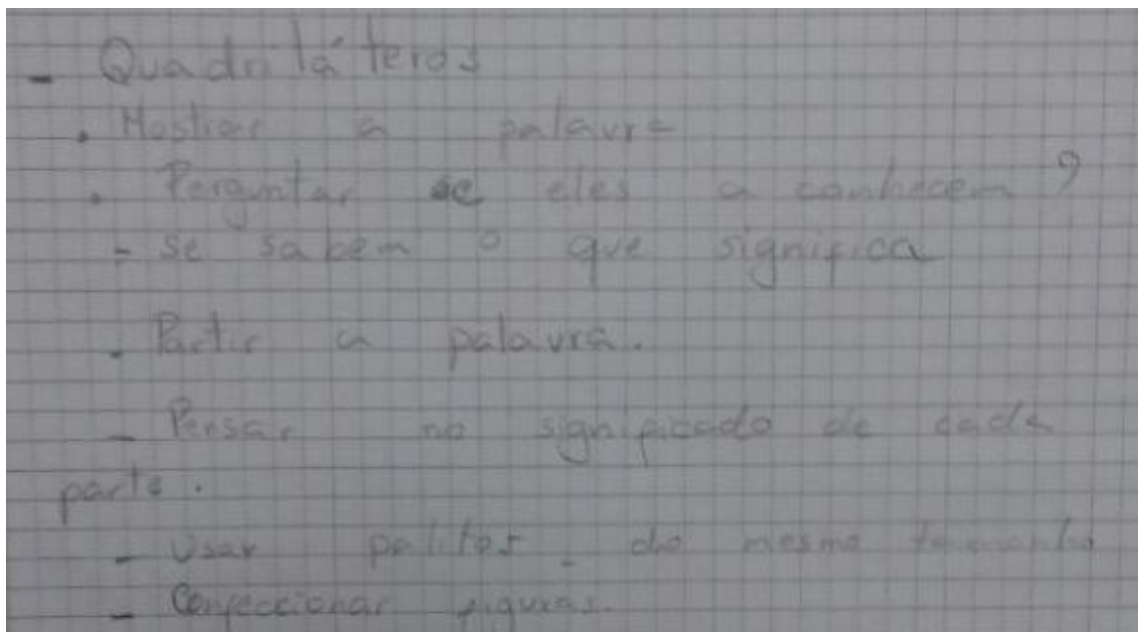 - Quadriláteros
. Mostrar a palavra
. Perguntar se eles a conhecem ?
- se sabem o que significa
. Partir a palavra.
- Pensar no significado de cada
parte.
- Usar palitos do mesmo tamanho
- Confeccionar figuras.